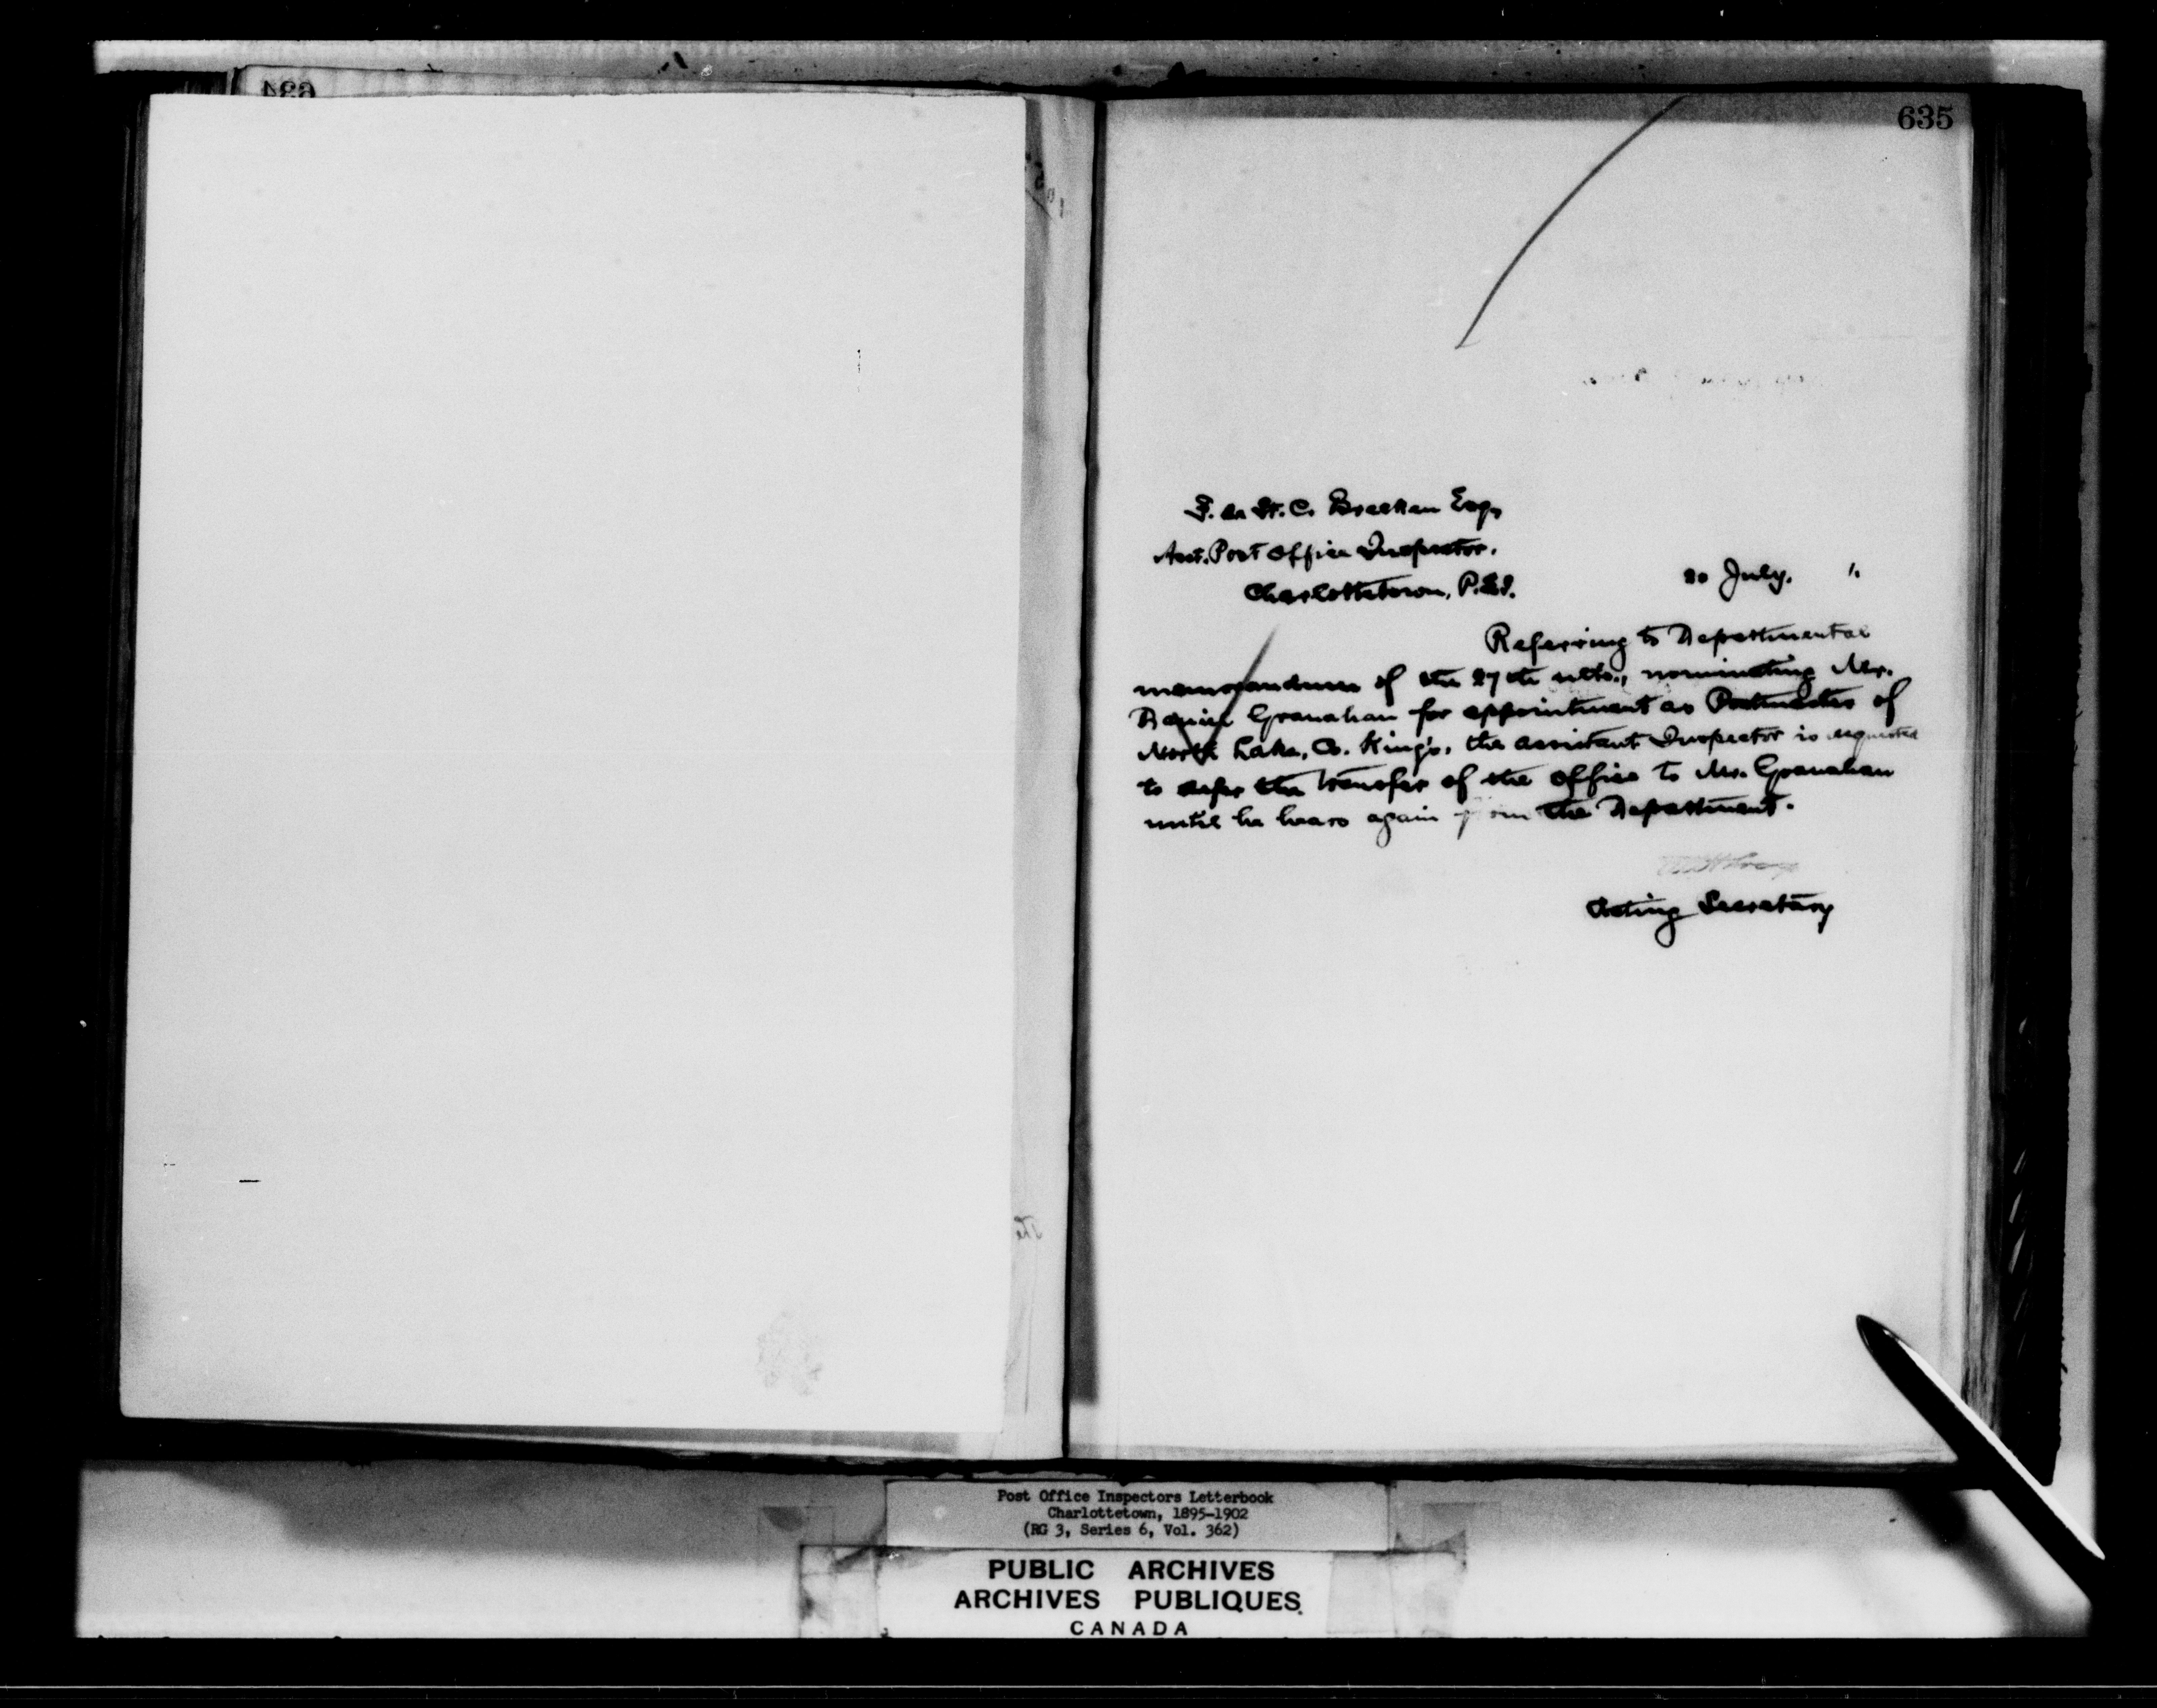 635
F. de St. C. Brecken Esq,
Asst. Post Office Inspector.
Charlottetown, P.E.I.
20 July. "
Referring to Departmental
memorandum of the 27th ulto., nominating Mr.
Daniel Granahan for appointment as Postmaster of
North Lake, Co. King's, the assistant Inspector is requested
to defer the transfer of the office to Mr. Granahan
until he hears again from the Department.
Acting Secretary
Post Office Inspectors Letterbook
Charlottetown, 1895-1902
(RG 3, Series 6, Vol. 362)
PUBLIC ARCHIVES
ARCHIVES PUBLIQUES
CANADA